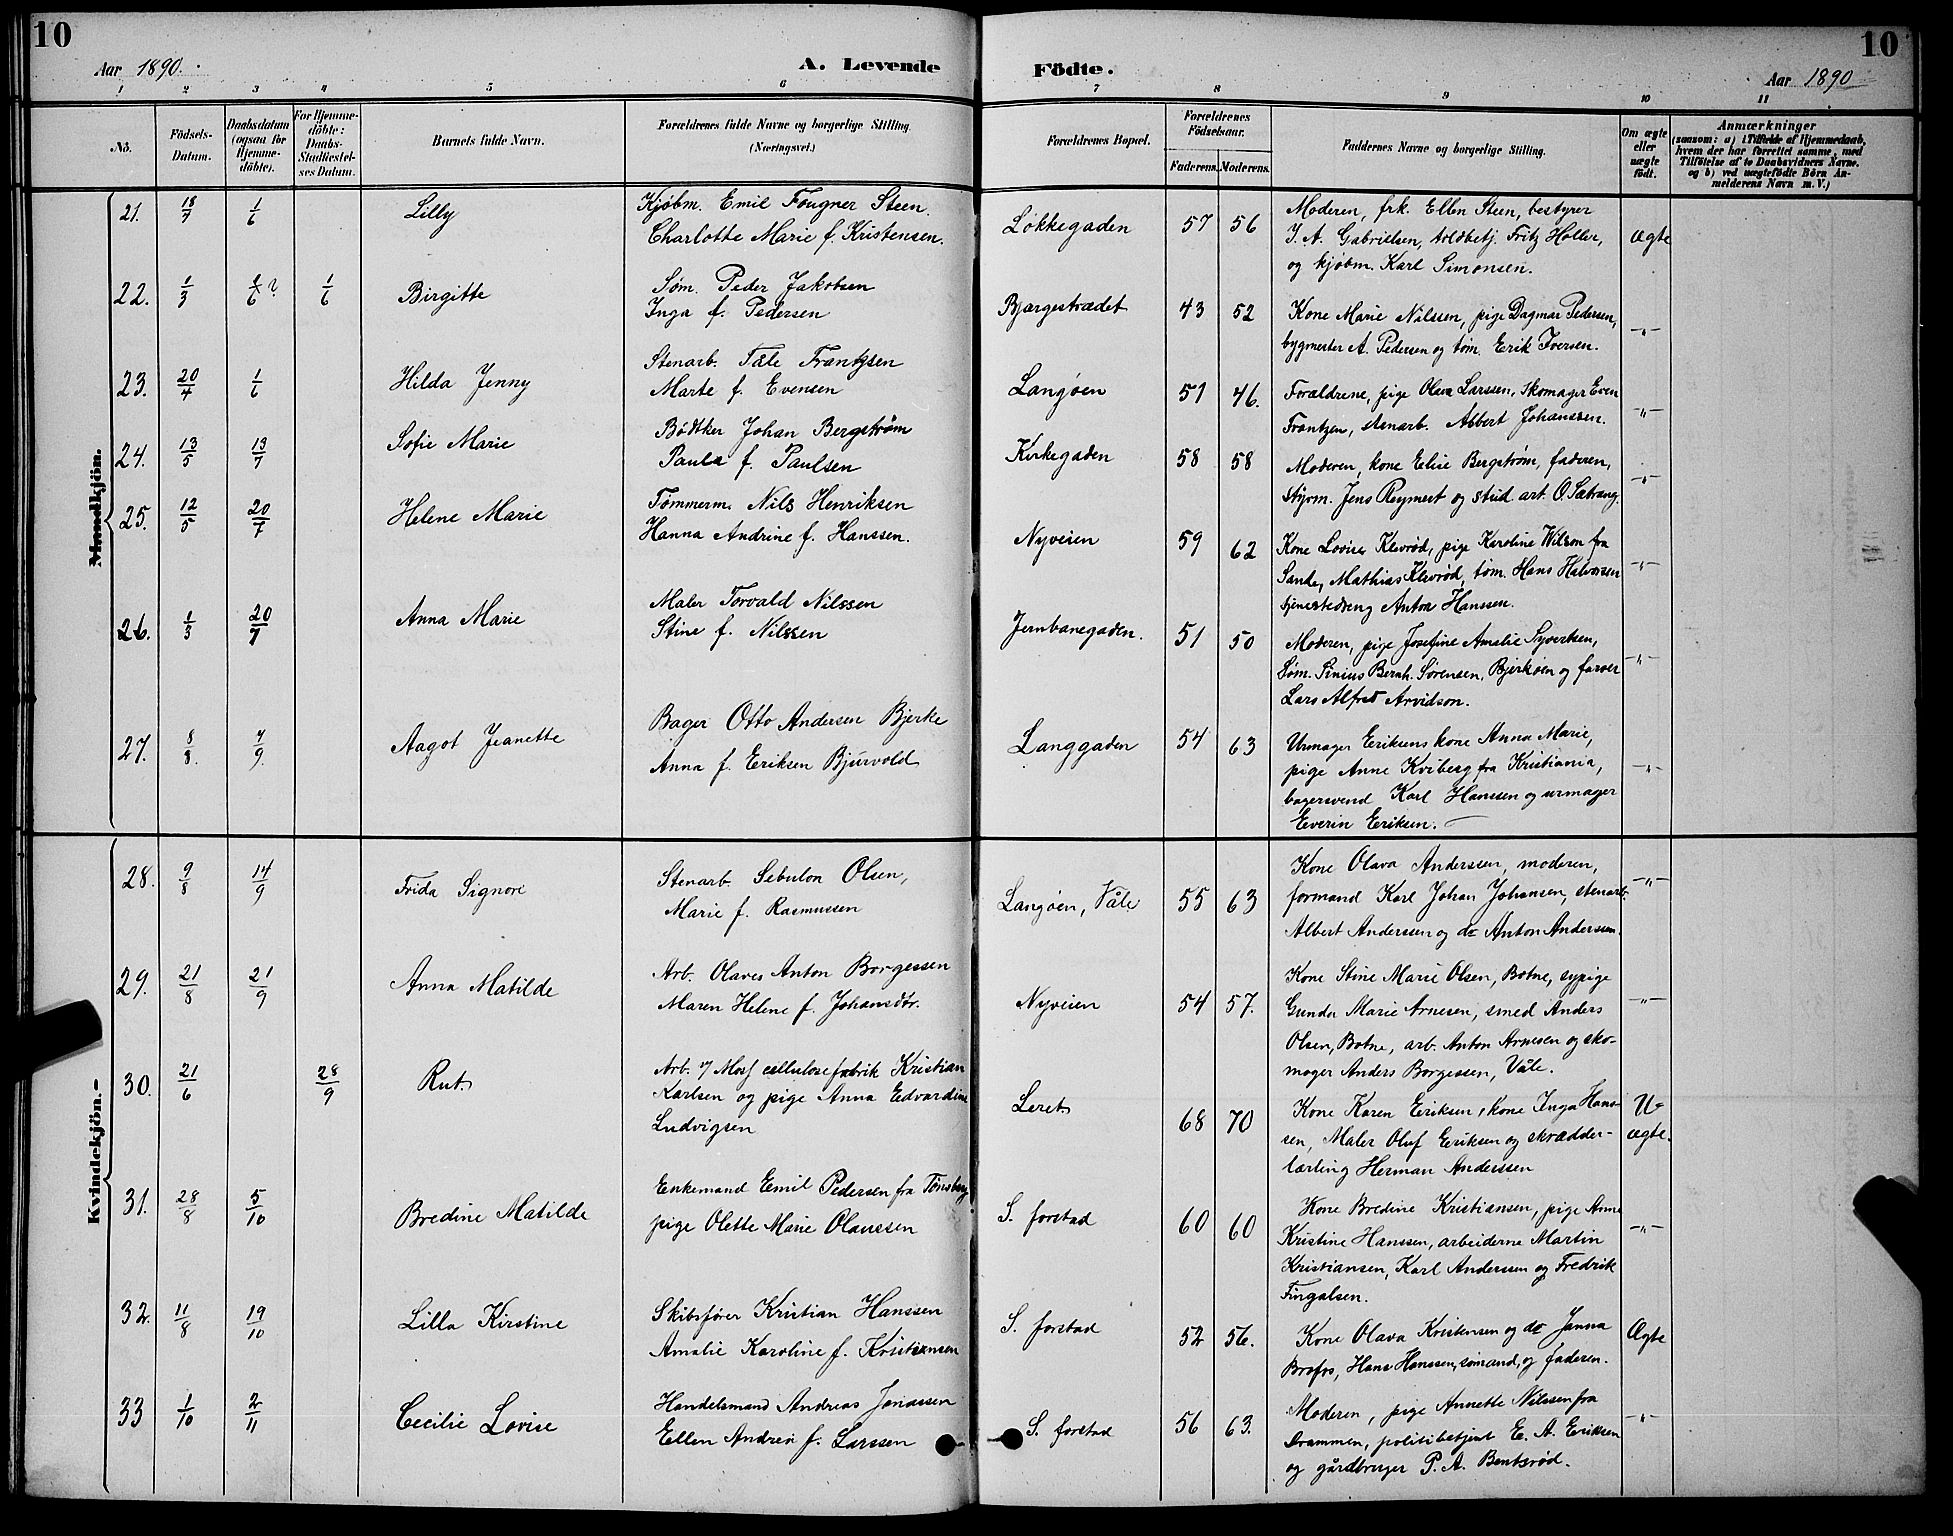 10
10
Aar 1890.
A. Levende
Födte.
Aar 1890
1 2 3 4 5 6 7 8 9 10 11
No.
Födsels-Datum.
Daabsdatum (ogsaa for Hjemme-döbte).
For Hjemme-döbte: Daabs-Stadfæstel-ses Datum.
Barnets fulde Navn.
Forældrenes fulde Navne og borgerlige Stilling. (Næringsvei.)
Forældrenes Bopæl.
Forældrenes Födselsaar.
Faderens. Moderens.
Faddernes Navne og borgerlige Stilling.
Om ægte eller uægte födt.
Anmærkninger
(saasom: a) i Tilfælde af Hjemmedaab,
hvem der har forrettet samme, med
Tilföielse af to Daabsvidners Navne.
og b) ved uægtefödte Börn An-
melderens Navn m. V.)
Mandkjön.
Kvindekjön.
21. 18/7 1/6 Lilly
Kjøbm. Emil Fougner Steen.
Charlotte Marie f. Kristensen.
Løkkegaden 57 56
Moderen, frk. Ellen Steen, bestyrer
J. A. Gabrielsen, toldbetj. Fritz Holler,
og kjøbm. Karl Simonsen.
Ægte
22. 1/3 1/6? 1/6 Birgitte
Søm. Peder Jakobsen
Inga f. Pedersen
Bjørgestrædet 43 52
Kone Marie Nilssen, pige Dagmar Pedersen,
bygmester A. Pedersen og tøm. Erik Iversen.
—"—
23. 20/4 1/6 Hilda Jenny
Stenarb. Tåle Frantzsen
Marte f. Evensen
Langøen 51 46.
Forældrene, pige Olava Larssen, Skomager Even
Frantzen, stenarb. Albert Johanssen.
—"—
24. 13/5 13/7 Sofie Marie
Bødtker Johan Bergstrøm
Paula f. Paulsen
Kirkegaden 58 58
Moderen, kone Elise Bergstrøm, faderen,
styrm. Jens Reymert og stud. art. O. Sætrang.
—"—
25. 12/5 20/7 Helene Marie
Tømmerm. Nils Henriksen
Hanna Andrine f. Hanssen.
Nyveien 59 62
Kone Lovise Klevrød, pige Karoline Wilson fra
Sande, Mathias Klevrød, tøm. Hans Halvorsen
tjenestedreng Anton Hanssen.
—"—
26. 1/3 20/7 Anna Marie
Maler Torvald Nilssen
Stine f. Nilssen
Jernbanegaden. 51 50
Moderen, pige Josefine Amalie Syvertsen,
Søm. Sinius Bernh. Sørensen, Bjerkøen og farver
Lars Alfred Arvidson.
—"—
27. 8/8. 7/9. Aagot Jeanette
Bager Otto Andersen Bjerke
Anna f. Eriksen Bjurvold
Langgaden 54 63
Urmager Eriksens kone Anna Marie,
pige Anne Kviberg fra Kristiania,
bagersvend Karl Hanssen og urmager
Everin Eriksen.
—"—
28. 9/8 14/9 Frida Signore
Stenarb. Sebulon Olsen,
Marie f. Rasmussen
Langøen, Våle 55 63
Kone Olava Anderssen, moderen,
formand Karl Johan Johansen, stenarb.
Albert Anderssen og do Anton Anderssen.
—"—
29. 21/8 21/9 Anna Matilde
Arb. Olaves Anton Borgessen
Maren Helene f. Johansdtr.
Nyveien 54 57.
Kone Stine Marie Olsen, Botne, sypige
Gunda Marie Arnesen, smed Anders
Olsen, Botne, arb. Anton Arnesen og sko-
mager Anders Borgessen, Våle.
—"—
30. 21/6 28/9 Rut
Arb. v/ Moss cellulosefabrik Kristian
Karlsen og pige Anna Edvardine
Ludvigsen
Leret 68 70
Kone Karen Eriksen, kone Inga Hans-
sen, Maler Oluf Eriksen og skrædder-
lærling Herman Anderssen
U-ægte.
31. 28/8 5/10 Bredine Matilde
Enkemand Emil Pedersen fra Tønsberg
pige Olette Marie Olaussen
S. forstad 60 60
Kone Bredine Kristiansen, pige Anne
Kristine Hanssen, arbeiderne Martin
Kristiansen, Karl Anderssen og Fredrik
Fingalsen.
—"—
32. 11/8 19/10 Lilla Kirstine
Skibsfører Kristian Hanssen
Amalie Karoline f. Kristiansen
S. forstad 52 56.
Kone Olava Kristensen og do Janna
Brofos, Hans Hanssen, sømand, og faderen.
Ægte
33 1/10 2/11 Cecilie Lovise
Handelsmand Andreas Jonassen
Ellen Andrea f. Larssen
S. forstad 56 63.
Moderen, pige Annette Nilssen fra
Drammen, politibetjent E. A. Eriksen
og gårdbruger P. A. Bentsrød.
—"—